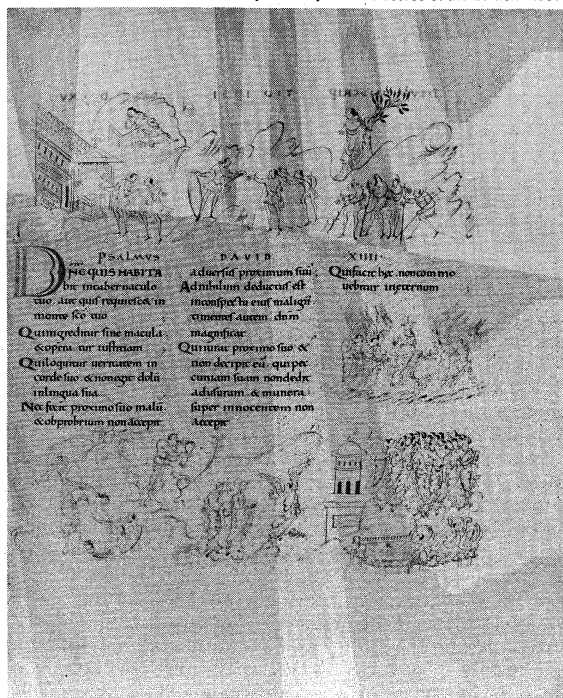 PSALMVS DAVID XIIII
DNE QUIS HABITA
bit intabernaculo
tuo aut quis requiesc& in
monte sco tuo
Quiingreditur sine macula
&opera tur iustitiam
Quiloquitur ueritatem in
corde suo &nonegit dolū
inlingua sua
Nec fecit proximo suo malū
&obprobrium nonaccepit
aduersus proximum suū;
Adnihilum deductus est
inconspectu eius
timentes autem dnm
magnificat
Quiiurat proximo suo &
non decepit eū qui pec
cuniam suam nondedit
adusuram & munera
super innocentem non
accepit
Quifacit hęc noncommo
uebitur ineternum